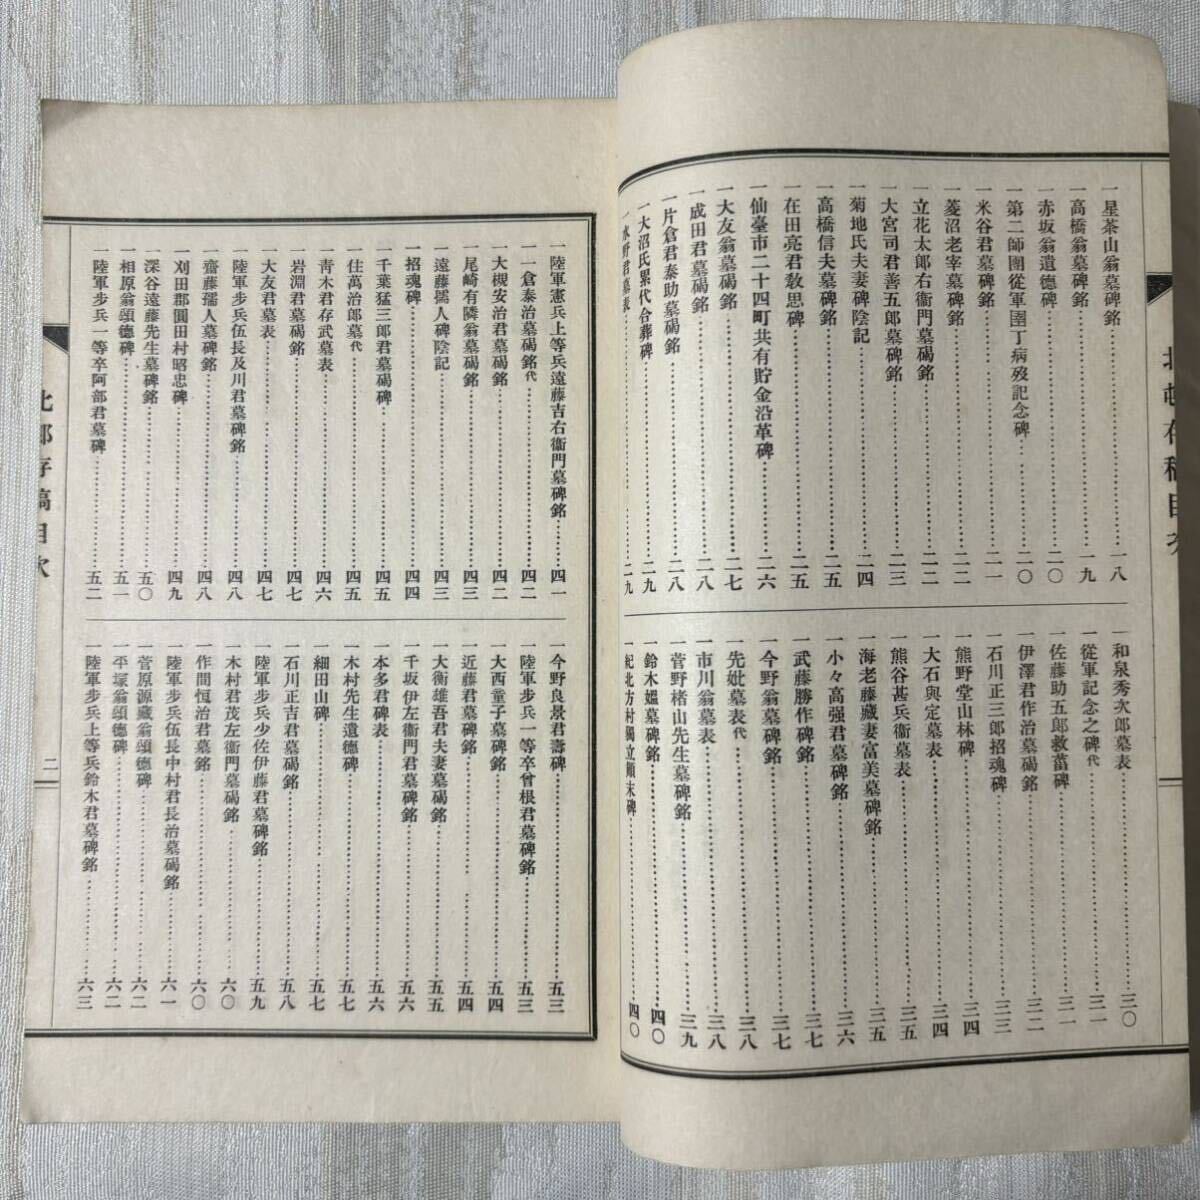 一星茶山翁墓碑銘………一八
一高橋翁墓碑銘………一九
一赤坂翁遺德碑………二〇
一第二師團從軍圉丁病歿記念碑………二〇
一米谷君墓碑銘………二一
一菱沼老宰墓碑銘………二二
一立花太郎右衞門墓碣銘………二二
一大宮司君善五郎墓碑銘………二三
一菊地氏夫妻碑陰記………二四
一高橋信夫墓碑銘………二五
一在田亮君敎思碑………二五
一仙臺市二十四町共有貯金沿革碑………二六
一大友翁墓碣銘………二七
一成田君墓碣銘………二八
一片倉君泰助墓碣銘………二八
一大沼氏累代合葬碑………二九
一水野君墓表………二九
一和泉秀次郎墓表………三〇
一從軍記念之碑代………三一
一佐藤助五郎救菑碑………三一
一伊澤君作治墓碣銘………三二
一石川正三郎招魂碑………三三
一熊野堂山林碑………三四
一大石與定墓表………三四
一熊谷甚兵衞墓表………三五
一海老藤藏妻富美墓碑銘………三五
一小々高强君墓碑銘………三六
一武藤勝作碑………三七
一今野翁墓碑………三七
一先妣墓表代………三八
一市川翁墓表………三八
一菅野楮山先生墓碑………三九
一鈴木媼墓碑銘………四〇
一紀北方村獨立顚末碑………四〇
一陸軍憲兵上等兵遠藤吉右衞門墓碑銘………四一
一一倉泰治墓碣銘代………四二
一大槻安治君墓碣銘………四二
一尾崎有隣翁墓碣銘………四三
一遠藤孺人碑陰記………四三
一招魂碑………四四
一千葉猛三郎君墓碣碑………四五
一住萬治郎墓代………四五
一靑木君存武墓表………四六
一岩淵君墓碣銘………四七
一大友君墓表………四七
一陸軍步兵伍長及川君墓碑銘………四八
一齋藤孺人墓碑銘………四八
一刈田郡圓田村昭忠碑………四九
一深谷遠藤先生墓碑銘………五〇
一相原翁頌德碑………五一
一陸軍步兵一等卒阿部君墓碑………五二
一今野良景君壽碑………五三
一陸軍步兵一等卒曾根君墓碣銘………五三
一大西童子墓碑銘………五四
一近藤君墓碑銘………五四
一大衡雄吾君夫妻墓碣銘………五五
一千坂伊左衞門君墓碑銘………五六
一本多君碑表………五六
一木村先生遺德碑………五七
一細田山碑………五七
一石川正吉君墓碣銘………五八
一陸軍步兵少佐伊藤君墓碑銘………五九
一木村君茂左衞門墓碣銘………六〇
一作間恒治君墓銘………六〇
一陸軍步兵伍長中村君長治墓碣銘………六一
一菅原源藏翁頌德碑………六二
一平塚翁頌德碑………六二
一陸軍步兵上等兵鈴木君墓碑銘………六三
存稿目次
二